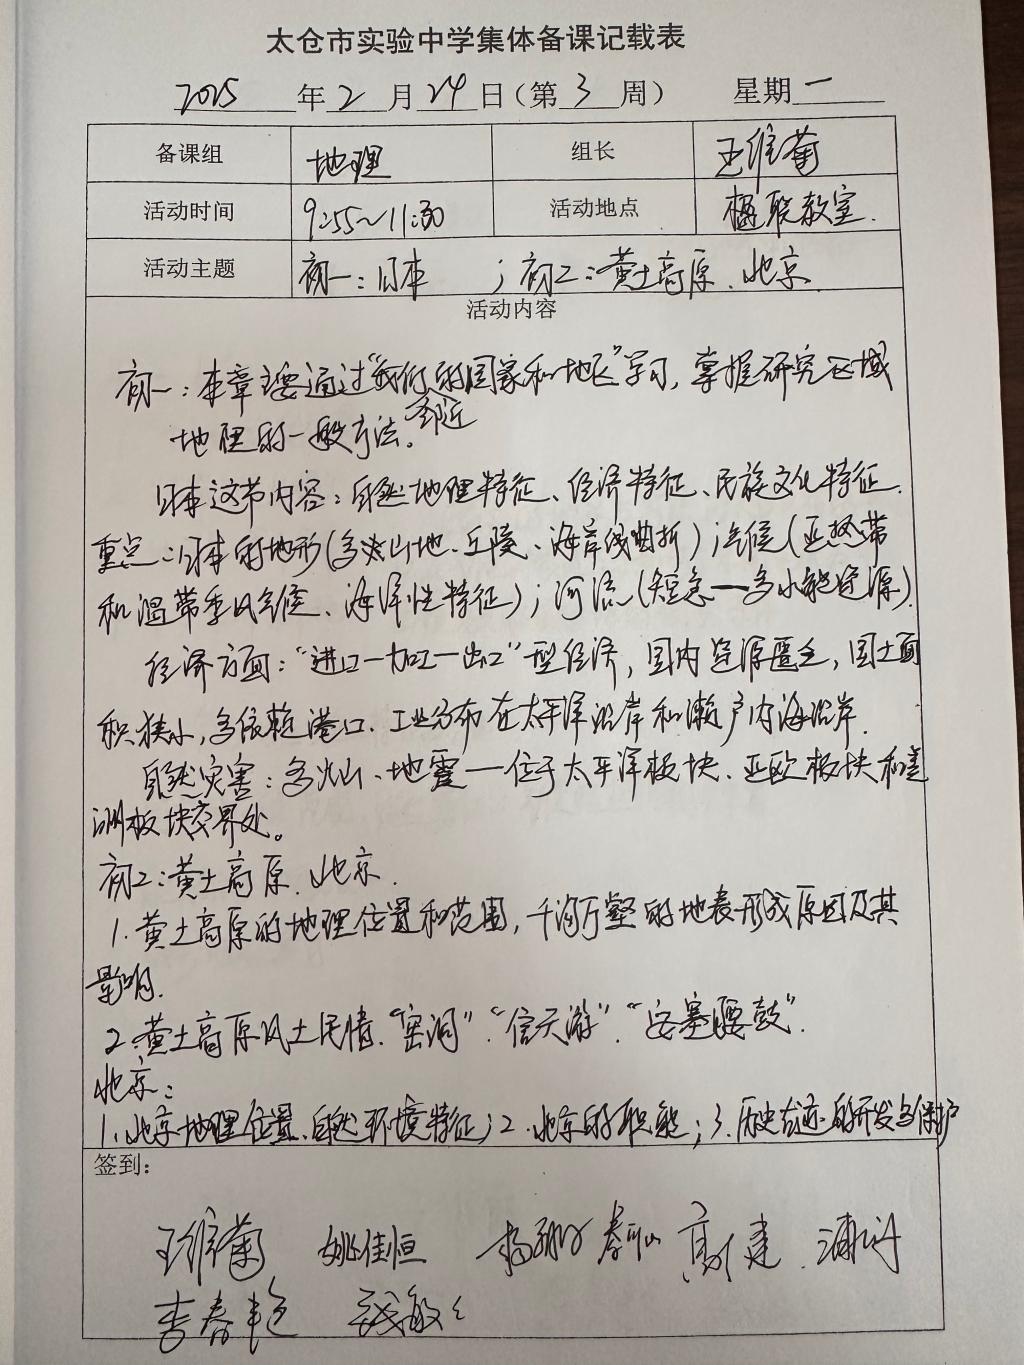 太仓市实验中学集体备课记载表
2025年2月24日（第3周） 星期一
备课组 地理 组长 王维菊
活动时间 9:55~11:30 活动地点 楹联教室.
活动主题 初一：日本 ；初二：黄土高原、北京
活动内容
初一：本章主要通过“我们的国家和地区”学习，掌握研究区域
邻近
地理的一般方法。
日本这节内容：自然地理特征、经济特征、民族文化特征.
重点：日本的地形(多火山地、丘陵、海岸线曲折)；气候(亚热带
和温带季风气候、海洋性特征)；河流(短急—多水能资源).
经济方面：“进口—加工—出口”型经济，国内资源匮乏，国土面
积狭小，多依赖港口、工业分布在太平洋沿岸和濑户内海沿岸.
自然灾害：多火山、地震—位于太平洋板块、亚欧板块和美
洲板块交界处。
初二：黄土高原、北京.
1.黄土高原的地理位置和范围，千沟万壑的地表形成原因及其
影响.
2.黄土高原风土民情.“窑洞”.“信天游”.“安塞腰鼓”.
北京：
1.北京地理位置、自然环境特征；2.北京的职能；3.历史古迹的开发与保护
签到：
王维菊 姚佳恒
李春艳 钱敏